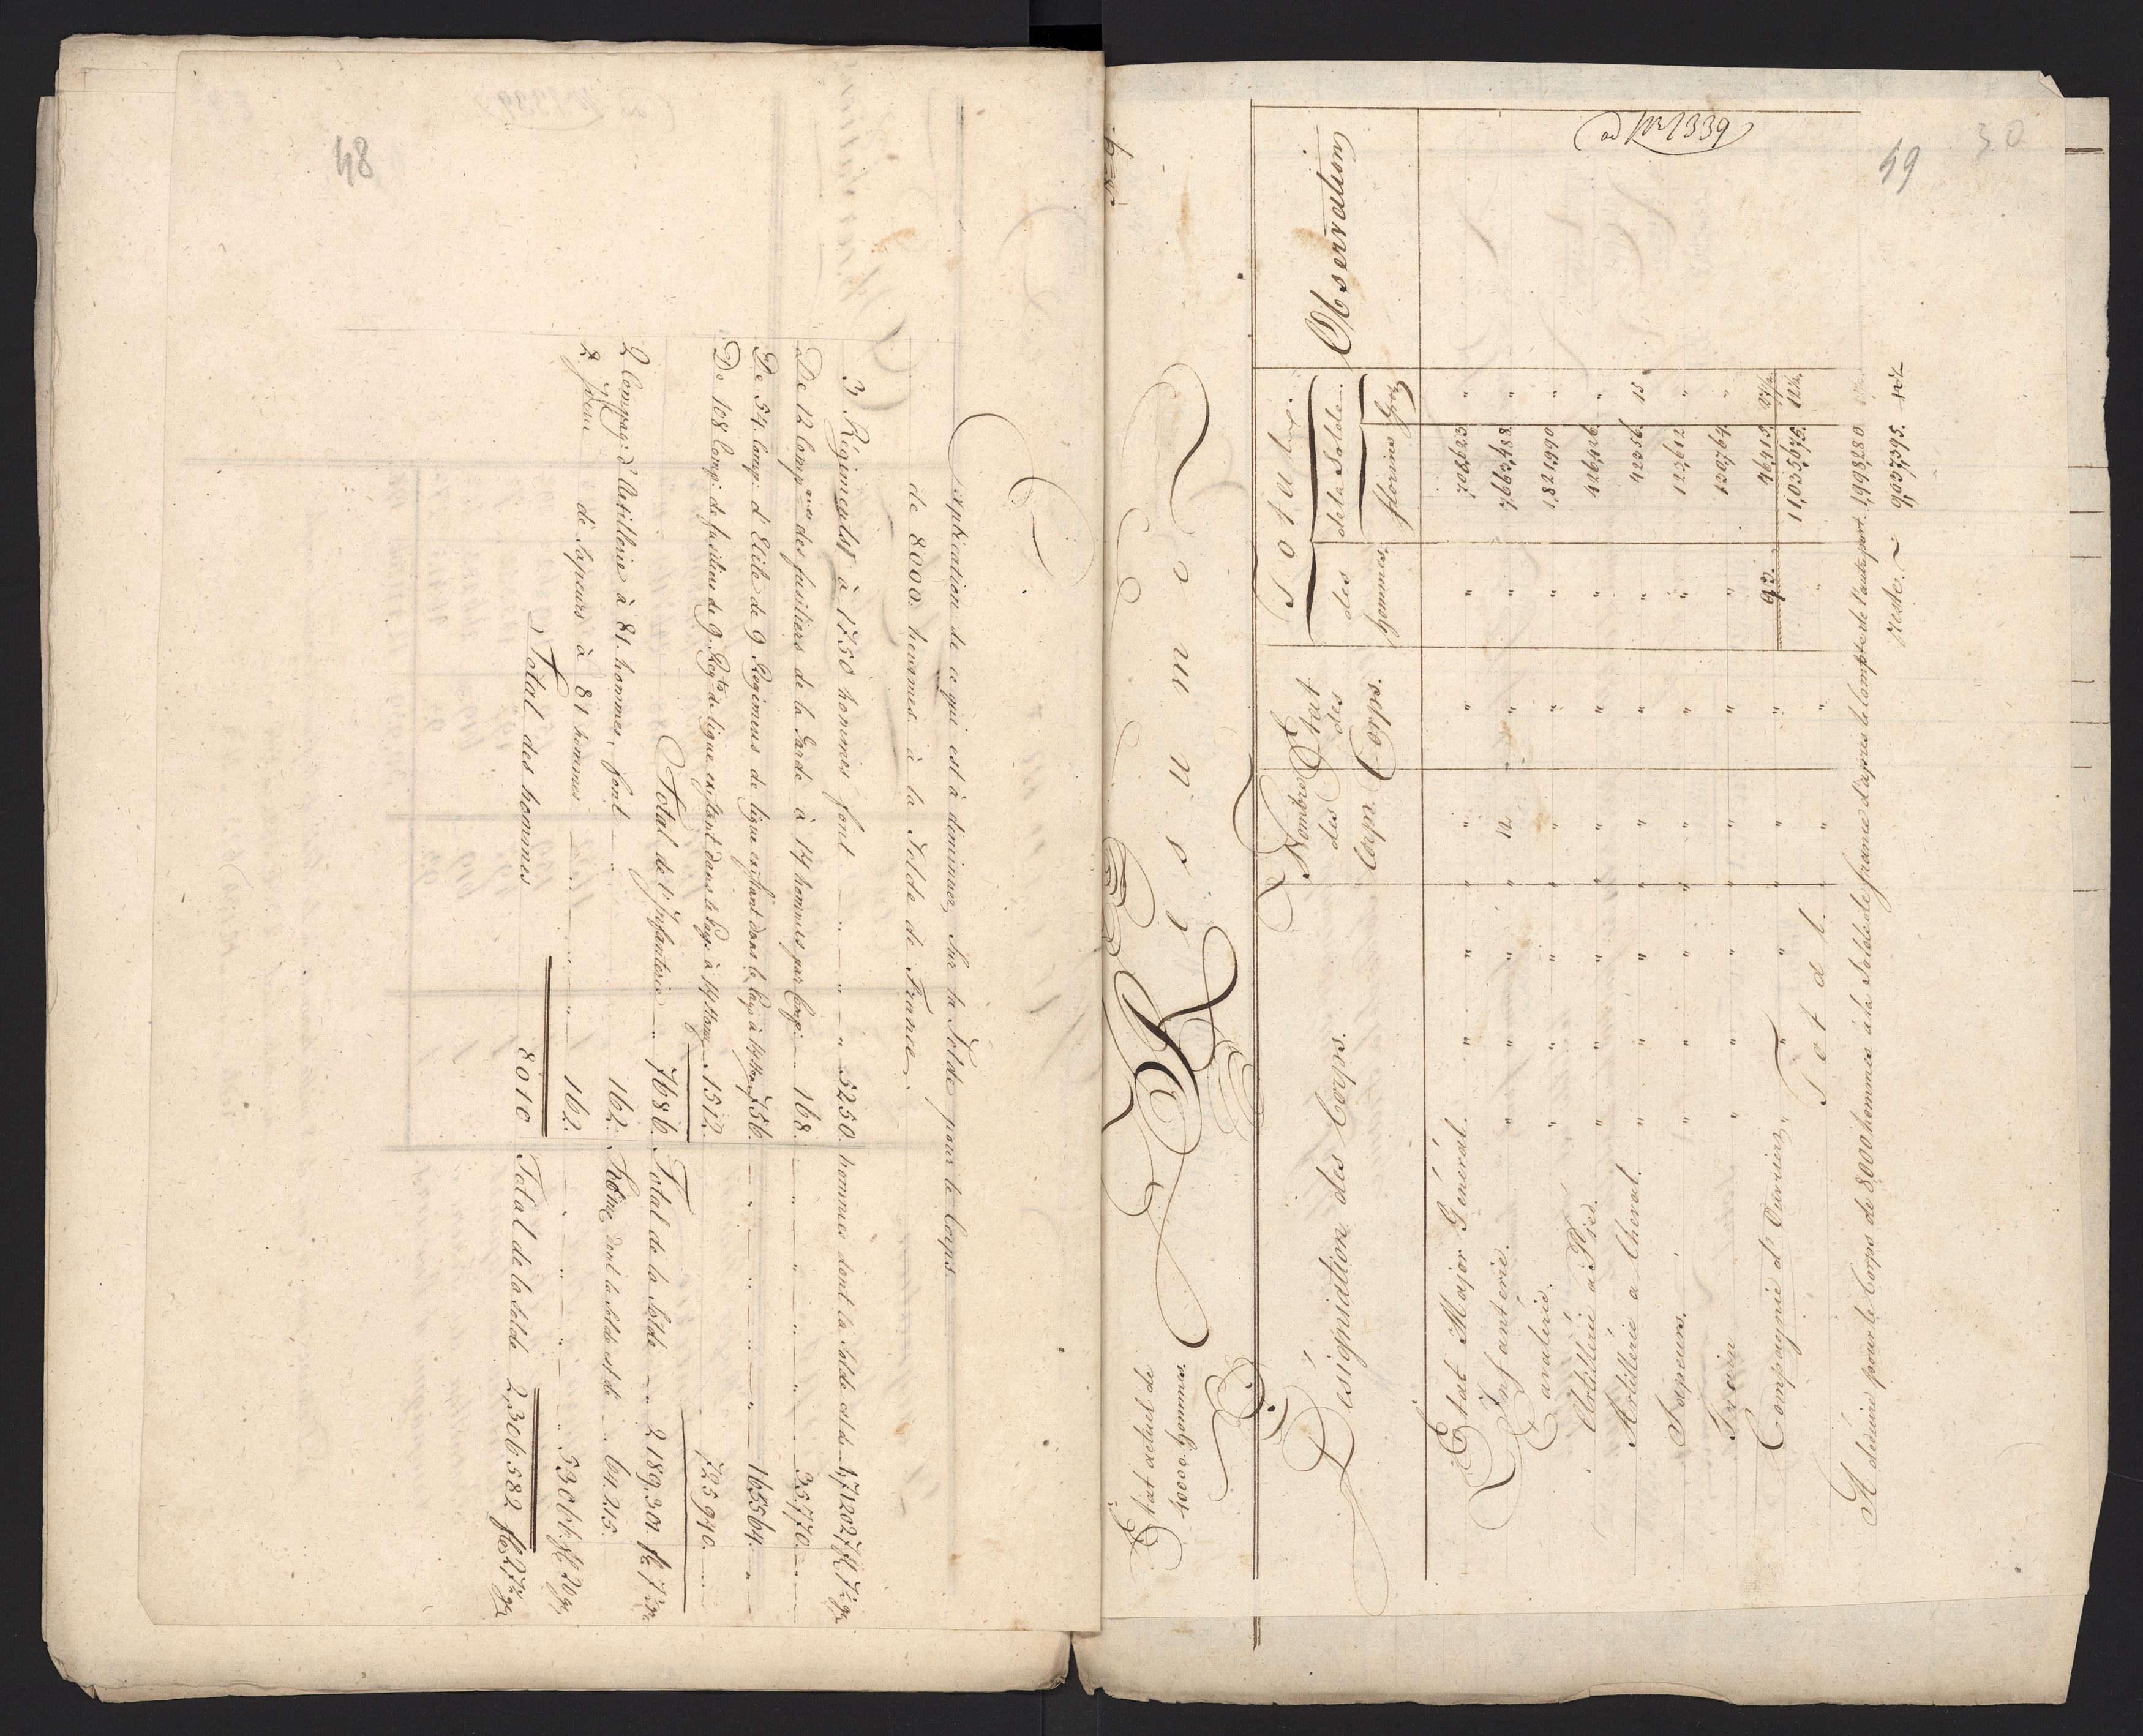 48
Explication de ce qui est à diminuer, Sur la Solde pour le Corps
de 8000 hommes à la Solde de France.
3 Régiments à 1750 hommes font " " " 5250 hommes dont la Solde est de
De 12 Comp.nies des fusiliers de la Garde à 14 hommes par Comp. 168. " " " " 35,770. "
De 54 Comp. d'Elite de 9 Regimens de ligne existant dans le Pays à 14 hom. 756. " " " " 165564. "
De 108 Comp. de fusiliers de 9 Reg.ts de ligne existant dans le Pays à 14 hom. 1512. 725940.
Total de l'Infanterie " 7686. Total de la Solde " 2,189,301. fl. 7½ gr.
2 Compag. d'Artillerie à 81 hommes, font " 162. dont la Solde est de " 64215.
2 Idem de Sapeurs à 81 hommes " " " 162. " " " 53066. fl. 20 gr.
Total des hommes 8010 Total de la Solde 2,306,582 fl. 27½ gr.
49
30
ad Nr 1339
Etat actuel de
40000 hommes.
Résumé
Désignation des Corps.
Nombre
des
Corps.
Etat
des
Corps.
Totaux.
des
hommes.
de la Solde.
florins
Gros
Observation
Etat Major Général. " " " " " " 708,623 "
Infanterie. " " " 12 " " 7,663,488 "
Cavalerie. " " " " " " 1,821,990 "
Artillerie à Pied. " " " " " " 426,426 "
Artillerie a Cheval. " " " " " " 42356. 15
Sapeurs. " " " " " " 123,612 "
Train " " " " " " 130,764. "
Compagnie d'Ouvriers " " " " " 93. 46,415.
Total. " " " 11,035,675. 12½.
A déduire pour le Corps de 8000 hommes à la Solde de France d'après le Compte de l'autre part. 1,998,280.
reste. ~ 9,037,395. 12½